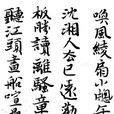 喚風綾扇小窗午
沈湘人去已遠勸
板勝讀離騷章
聽江頭畫船喧